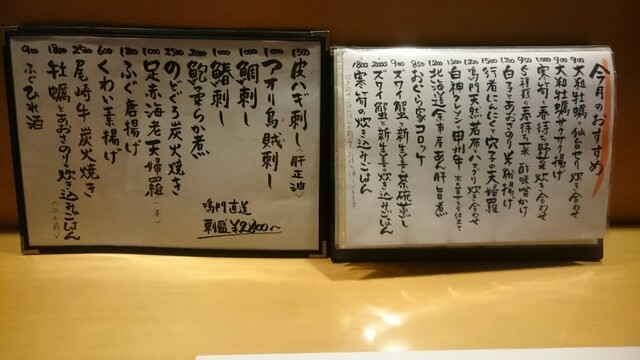 今月のおすすめ
900 大粒牡蠣 仙台セリ炊き合わせ
900 大粒牡蠣サクサク揚げ
1000 寒筍と春待ち野菜 炊き合わせ
950 5種類の春待ち菜 酢味噌かけ
1200 白子とあおさのり 米粉揚げ
1500 行者にんにくと穴子の天婦羅
1200 鳴門天然若布とハマグリ炊き合わせ
1500 白神クレソンと甲州牛
1200 北海道余市産 あん肝旨煮
850 おぐら家コロッケ
900 ズワイ蟹と新生姜 茶碗蒸し
2000 ズワイ蟹と新生姜 炊き込みごはん
1800 寒筍の炊き込みごはん
1500 皮ハギ刺し(肝正油)
1000 アオリ烏賊刺し
1000 鯛刺し
1000 鰆刺し
2000 鮑柔らか煮
2500 のどぐろ炭火焼き
1000 足赤海老天婦羅(一本)
1200 ふぐ唐揚げ
600 くわい素揚げ
2500 尾崎牛炭火焼き
1800 牡蠣とあおさのり炊き込みごはん(二人前)
900 ふぐひれ酒
鳴門直送
刺盛 ¥2,800〜